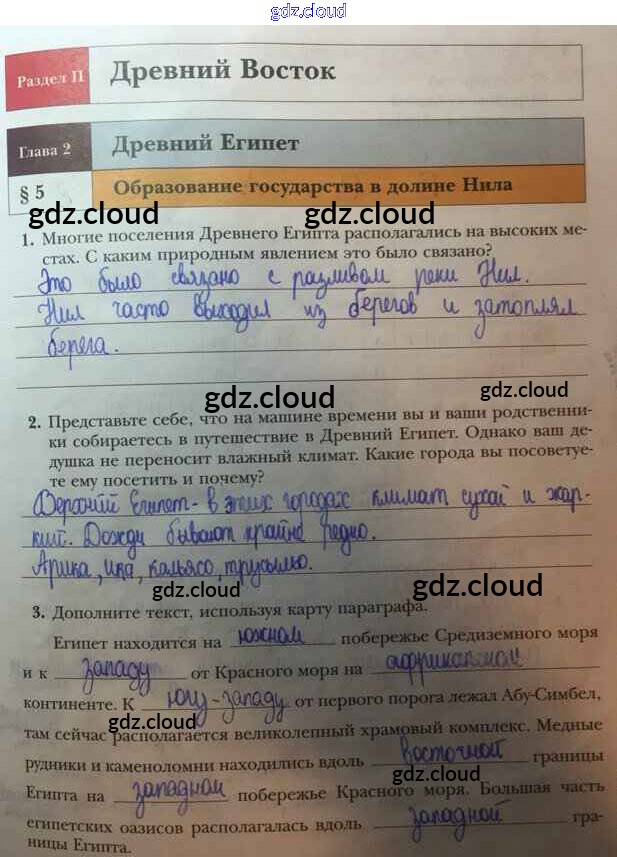 gdz.cloud
Раздел II
Древний Восток
Глава 2
Древний Египет
§ 5
Образование государства в долине Нила
gdz.cloud
gdz.cloud
1. Многие поселения Древнего Египта располагались на высоких ме-
стах. С каким природным явлением это было связано?
Это было связано с разливом реки Нил.
Нил часто выходил из берегов и затоплял
берега.
gdz.cloud
gdz.cloud
2. Представьте себе, что на машине времени вы и ваши родственни-
ки собираетесь в путешествие в Древний Египет. Однако ваш де-
душка не переносит влажный климат. Какие города вы посоветуе-
те ему посетить и почему?
Верхний Египет - в этих городах климат сухой и жар-
кий. Дожди бывают крайне редко.
Арика, ика,
gdz.cloud
gdz.cloud
3. Дополните текст, используя карту параграфа.
Египет находится на южном побережье Средиземного моря
и к западу от Красного моря на африканском
континенте. К югу-западу от первого порога лежал Абу-Симбел,
gdz.cloud
там сейчас располагается великолепный храмовый комплекс. Медные
рудники и каменоломни находились вдоль восточной границы
gdz.cloud
Египта на западном побережье Красного моря. Большая часть
египетских оазисов располагалась вдоль западной гра-
ницы Египта.
gdz.cloud